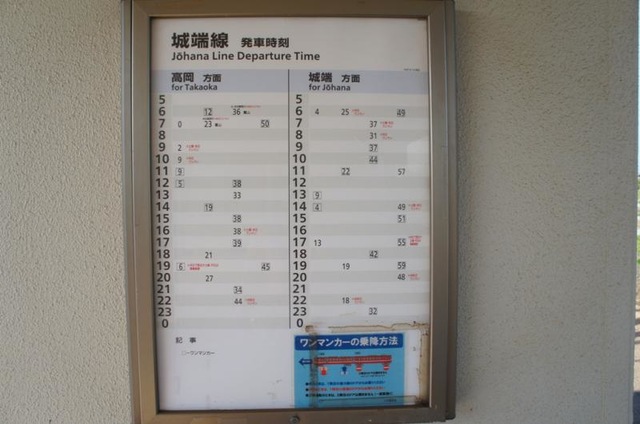 城端線 発車時刻
Jōhana Line Departure Time
高岡 方面
for Takaoka
5
6 12 36
7 0 23 50
8
9 2
10 9
11 9
12 5 38
13 33
14 19
15 38
16 38
17 39
18 21
19 6 45
20 27
21 34
22 44
23
0
城端 方面
for Jōhana
5
6 4 25 49
7 37
8 31
9 37
10 44
11 22 57
12
13 9
14 4 49
15 51
16
17 13 55
18 42
19 19 59
20 48
21
22 18
23 32
0
記 事
ワンマンカー
ワンマンカーの乗降方法